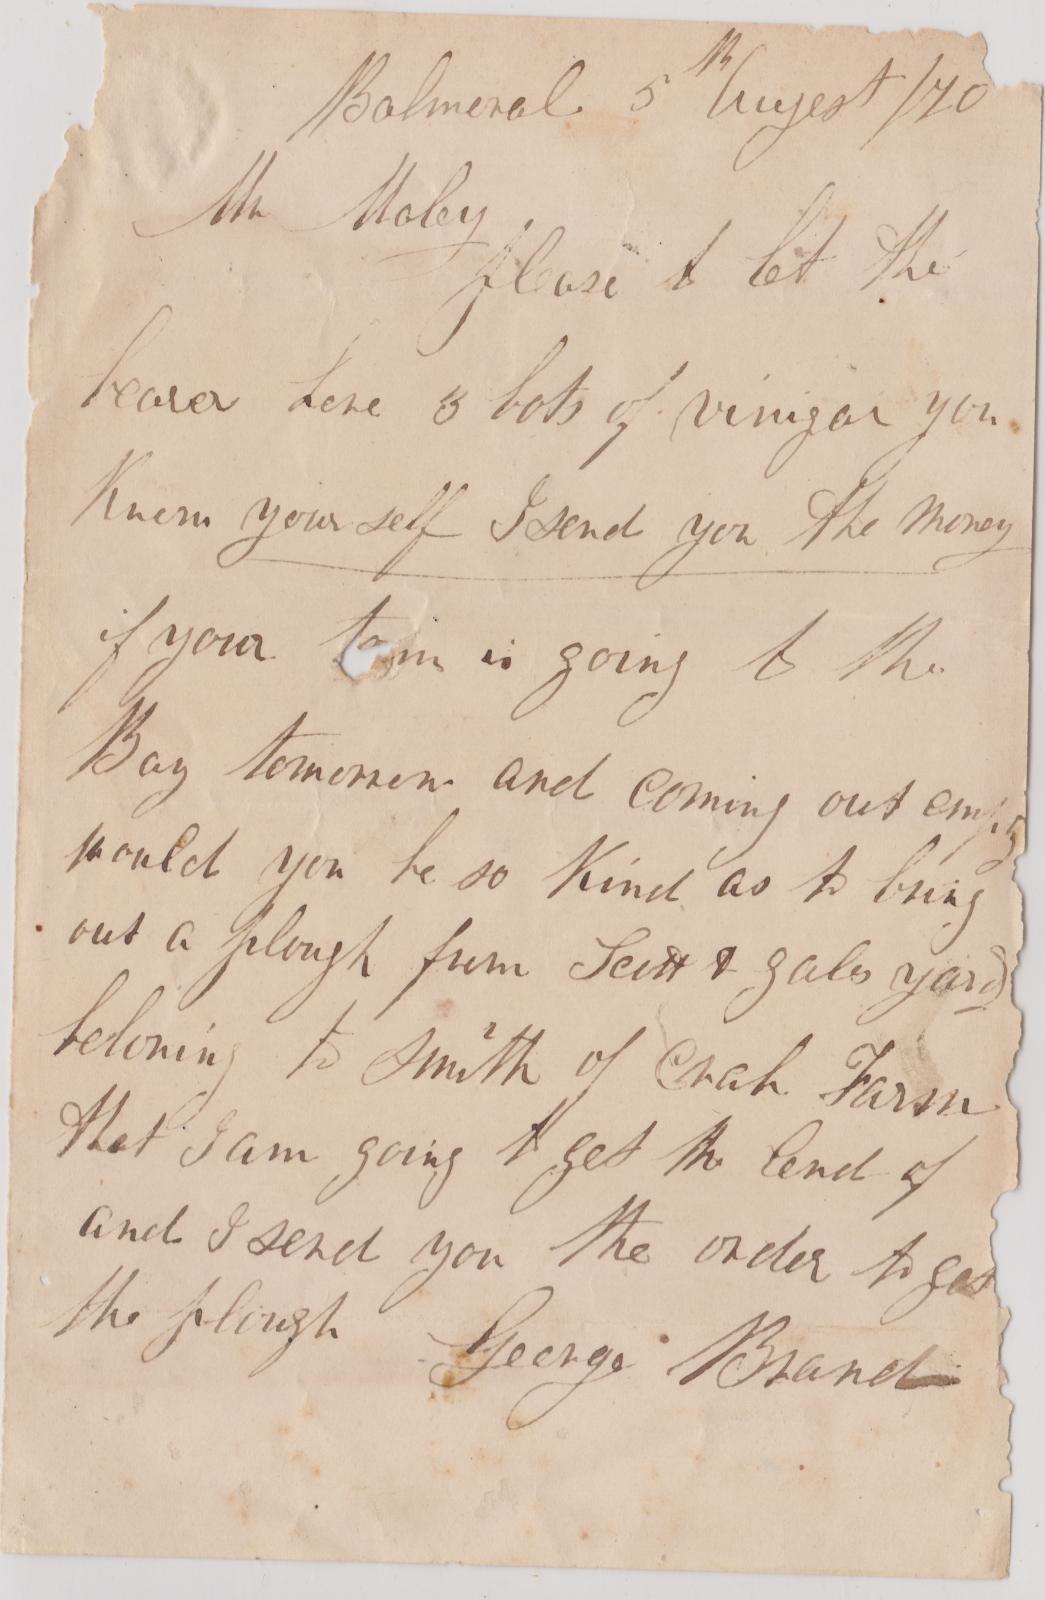 Balmoral 5th Augest /70
Mr Maley
please to let the
bearer have 3 bots of vinigar you
Know your self I send you the money
if your is going to the
Bay tomorrow and coming out empty
would you be so Kind as to bring
out a plough from Scott & gales yard
beloning to Smith of Crah Farm
that I am going to get the lend of
and I send you the order to get
the plough George Brand